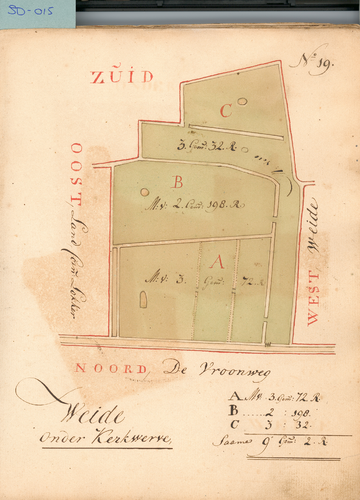 SD-015
No. 19.
ZŨID
C
3. Gem: 32. R
B
M.v. 2. Gem: 198. R
A
M.v. 3. Gem: 72. R
OOST
Land
Lekker
WEST Weide
NOORD De Vroonweg
Weide
Onder Kerkwerve,
A Mv 3. Gem: 72. R
B ..... 2 : 198.
C 3 : 32.
Saame 9 Gem: 2. R